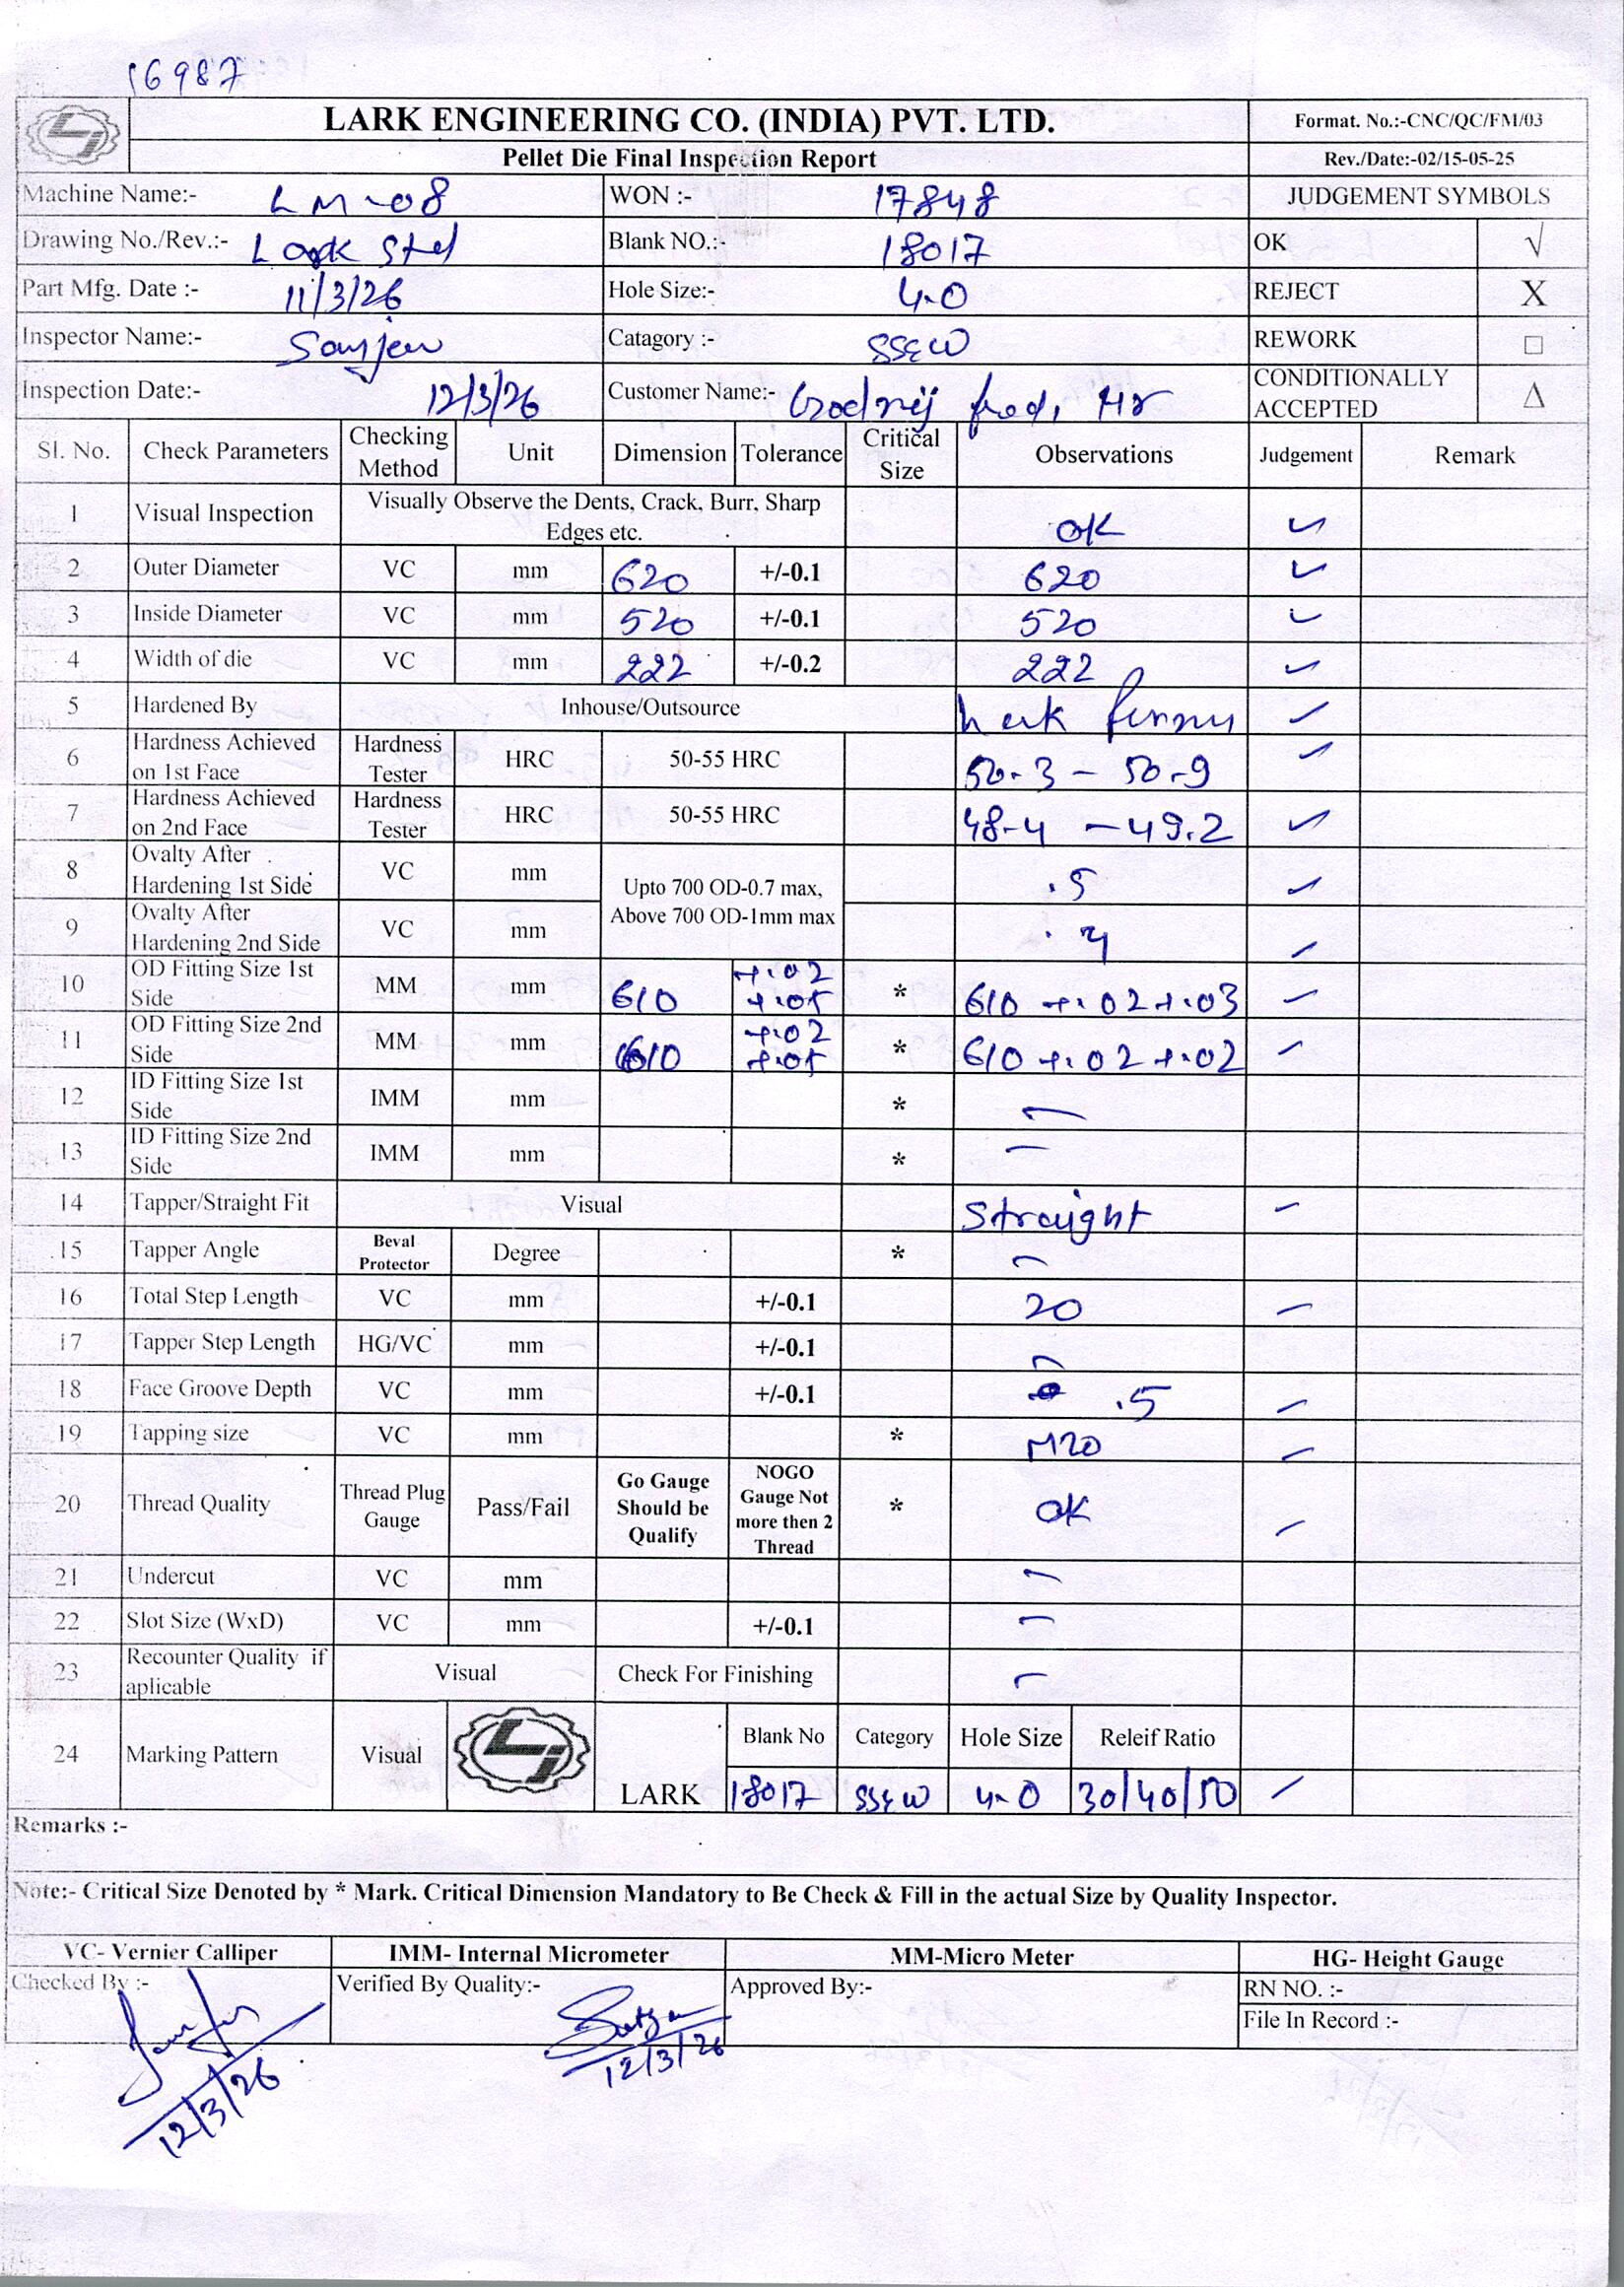 16987
LARK ENGINEERING CO. (INDIA) PVT. LTD.
Format. No.:-CNC/QC/FM/03
Pellet Die Final Inspection Report
Rev./Date:-02/15-05-25
Machine Name:- LM-08 WON :- 17848 JUDGEMENT SYMBOLS
Drawing No./Rev.:- Lark Std Blank NO.:- 18017 OK √
Part Mfg. Date :- 11/3/26 Hole Size:- 4.0 REJECT X
Inspector Name:- Sanjeev Catagory :- SSEW REWORK □
Inspection Date:- 12/3/26 Customer Name:- CONDITIONALLY ACCEPTED Δ
Sl. No. Check Parameters Checking Method Unit Dimension Tolerance Critical Size Observations Judgement Remark
1 Visual Inspection Visually Observe the Dents, Crack, Burr, Sharp Edges etc. OK ✓
2 Outer Diameter VC mm 620 +/-0.1 620 ✓
3 Inside Diameter VC mm 520 +/-0.1 520 ✓
4 Width of die VC mm 222 +/-0.2 222 ✓
5 Hardened By Inhouse/Outsource ✓
6 Hardness Achieved on 1st Face Hardness Tester HRC 50-55 HRC 50.3 - 50.9 ✓
7 Hardness Achieved on 2nd Face Hardness Tester HRC 50-55 HRC 48.4 - 49.2 ✓
8 Ovalty After Hardening 1st Side VC mm Upto 700 OD-0.7 max, Above 700 OD-1mm max .5 ✓
9 Ovalty After Hardening 2nd Side VC mm ✓
10 OD Fitting Size 1st Side MM mm 610 +.02 +.05 * 610 +.02 +.03 ✓
11 OD Fitting Size 2nd Side MM mm 610 +.02 +.05 * 610 +.02 +.02 ✓
12 ID Fitting Size 1st Side IMM mm * -
13 ID Fitting Size 2nd Side IMM mm * -
14 Tapper/Straight Fit Visual Straight ✓
15 Tapper Angle Beval Protector Degree * -
16 Total Step Length VC mm +/-0.1 20 ✓
17 Tapper Step Length HG/VC mm +/-0.1 -
18 Face Groove Depth VC mm +/-0.1 .5 ✓
19 Tapping size VC mm * M20 ✓
20 Thread Quality Thread Plug Gauge Pass/Fail Go Gauge Should be Qualify NOGO Gauge Not more then 2 Thread * OK ✓
21 Undercut VC mm -
22 Slot Size (WxD) VC mm +/-0.1 -
23 Recounter Quality if aplicable Visual Check For Finishing -
24 Marking Pattern Visual LARK Blank No Category Hole Size Releif Ratio
18017 SSEW 4.0 30/40/50 ✓
Remarks :-
Note:- Critical Size Denoted by * Mark. Critical Dimension Mandatory to Be Check & Fill in the actual Size by Quality Inspector.
VC- Vernier Calliper IMM- Internal Micrometer MM-Micro Meter HG- Height Gauge
Checked By :- Verified By Quality:- Approved By:- RN NO. :-
File In Record :-
12/3/26 12/3/26